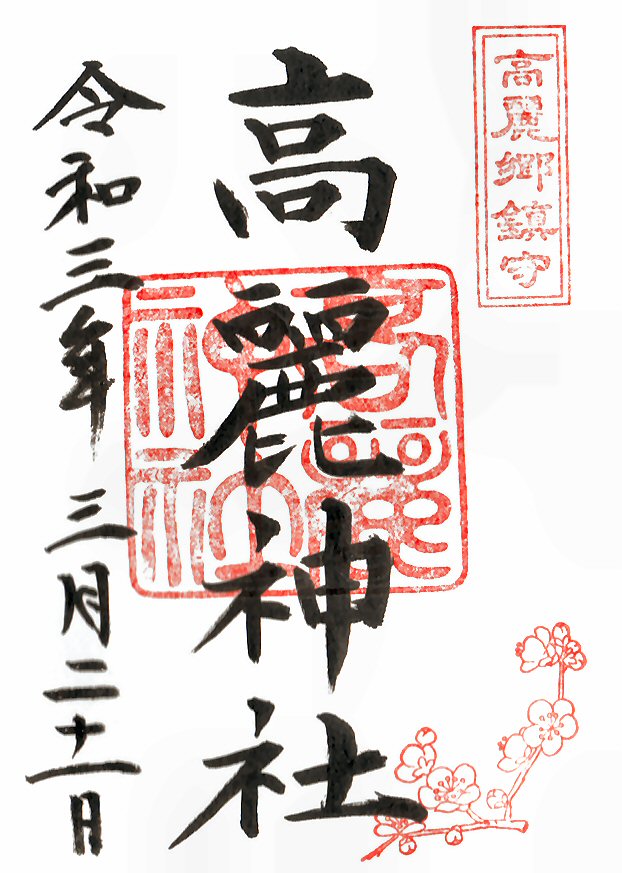 高麗郷鎮守
高麗神社
令和三年 三月二十一日